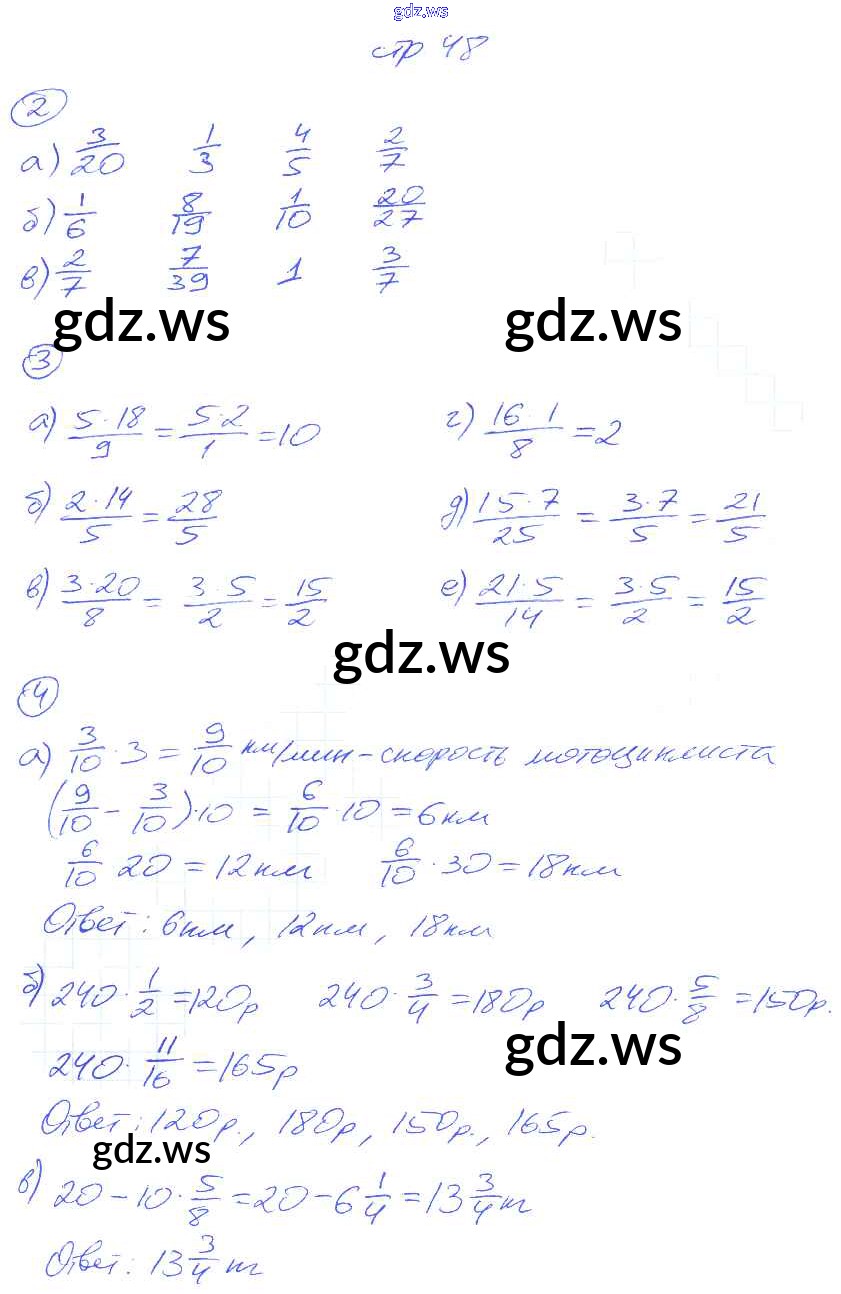 gdz.ws
стр 48
2
а) 3/20 1/3 4/5 2/7
б) 1/6 8/19 1/10 20/27
в) 2/7 7/39 1 3/7
gdz.ws gdz.ws
3
а) 5·18/9 = 5·2/1 = 10 г) 16·1/8 = 2
б) 2·14/5 = 28/5 д) 15·7/25 = 3·7/5 = 21/5
в) 3·20/8 = 3·5/2 = 15/2 е) 21·5/14 = 3·5/2 = 15/2
gdz.ws
4
а) 3/10 · 3 = 9/10 км/мин - скорость мотоциклиста
(9/10 - 3/10)·10 = 6/10 · 10 = 6км
6/10 20 = 12км 6/10 · 30 = 18км
Ответ: 6км, 12км, 18км
б) 240 · 1/2 = 120р 240 · 3/4 = 180р 240 · 5/8 = 150р.
240 · 11/16 = 165р
gdz.ws
Ответ: 120р., 180р, 150р., 165р.
gdz.ws
в) 20 - 10 · 5/8 = 20 - 6 1/4 = 13 3/4 т
Ответ: 13 3/4 т